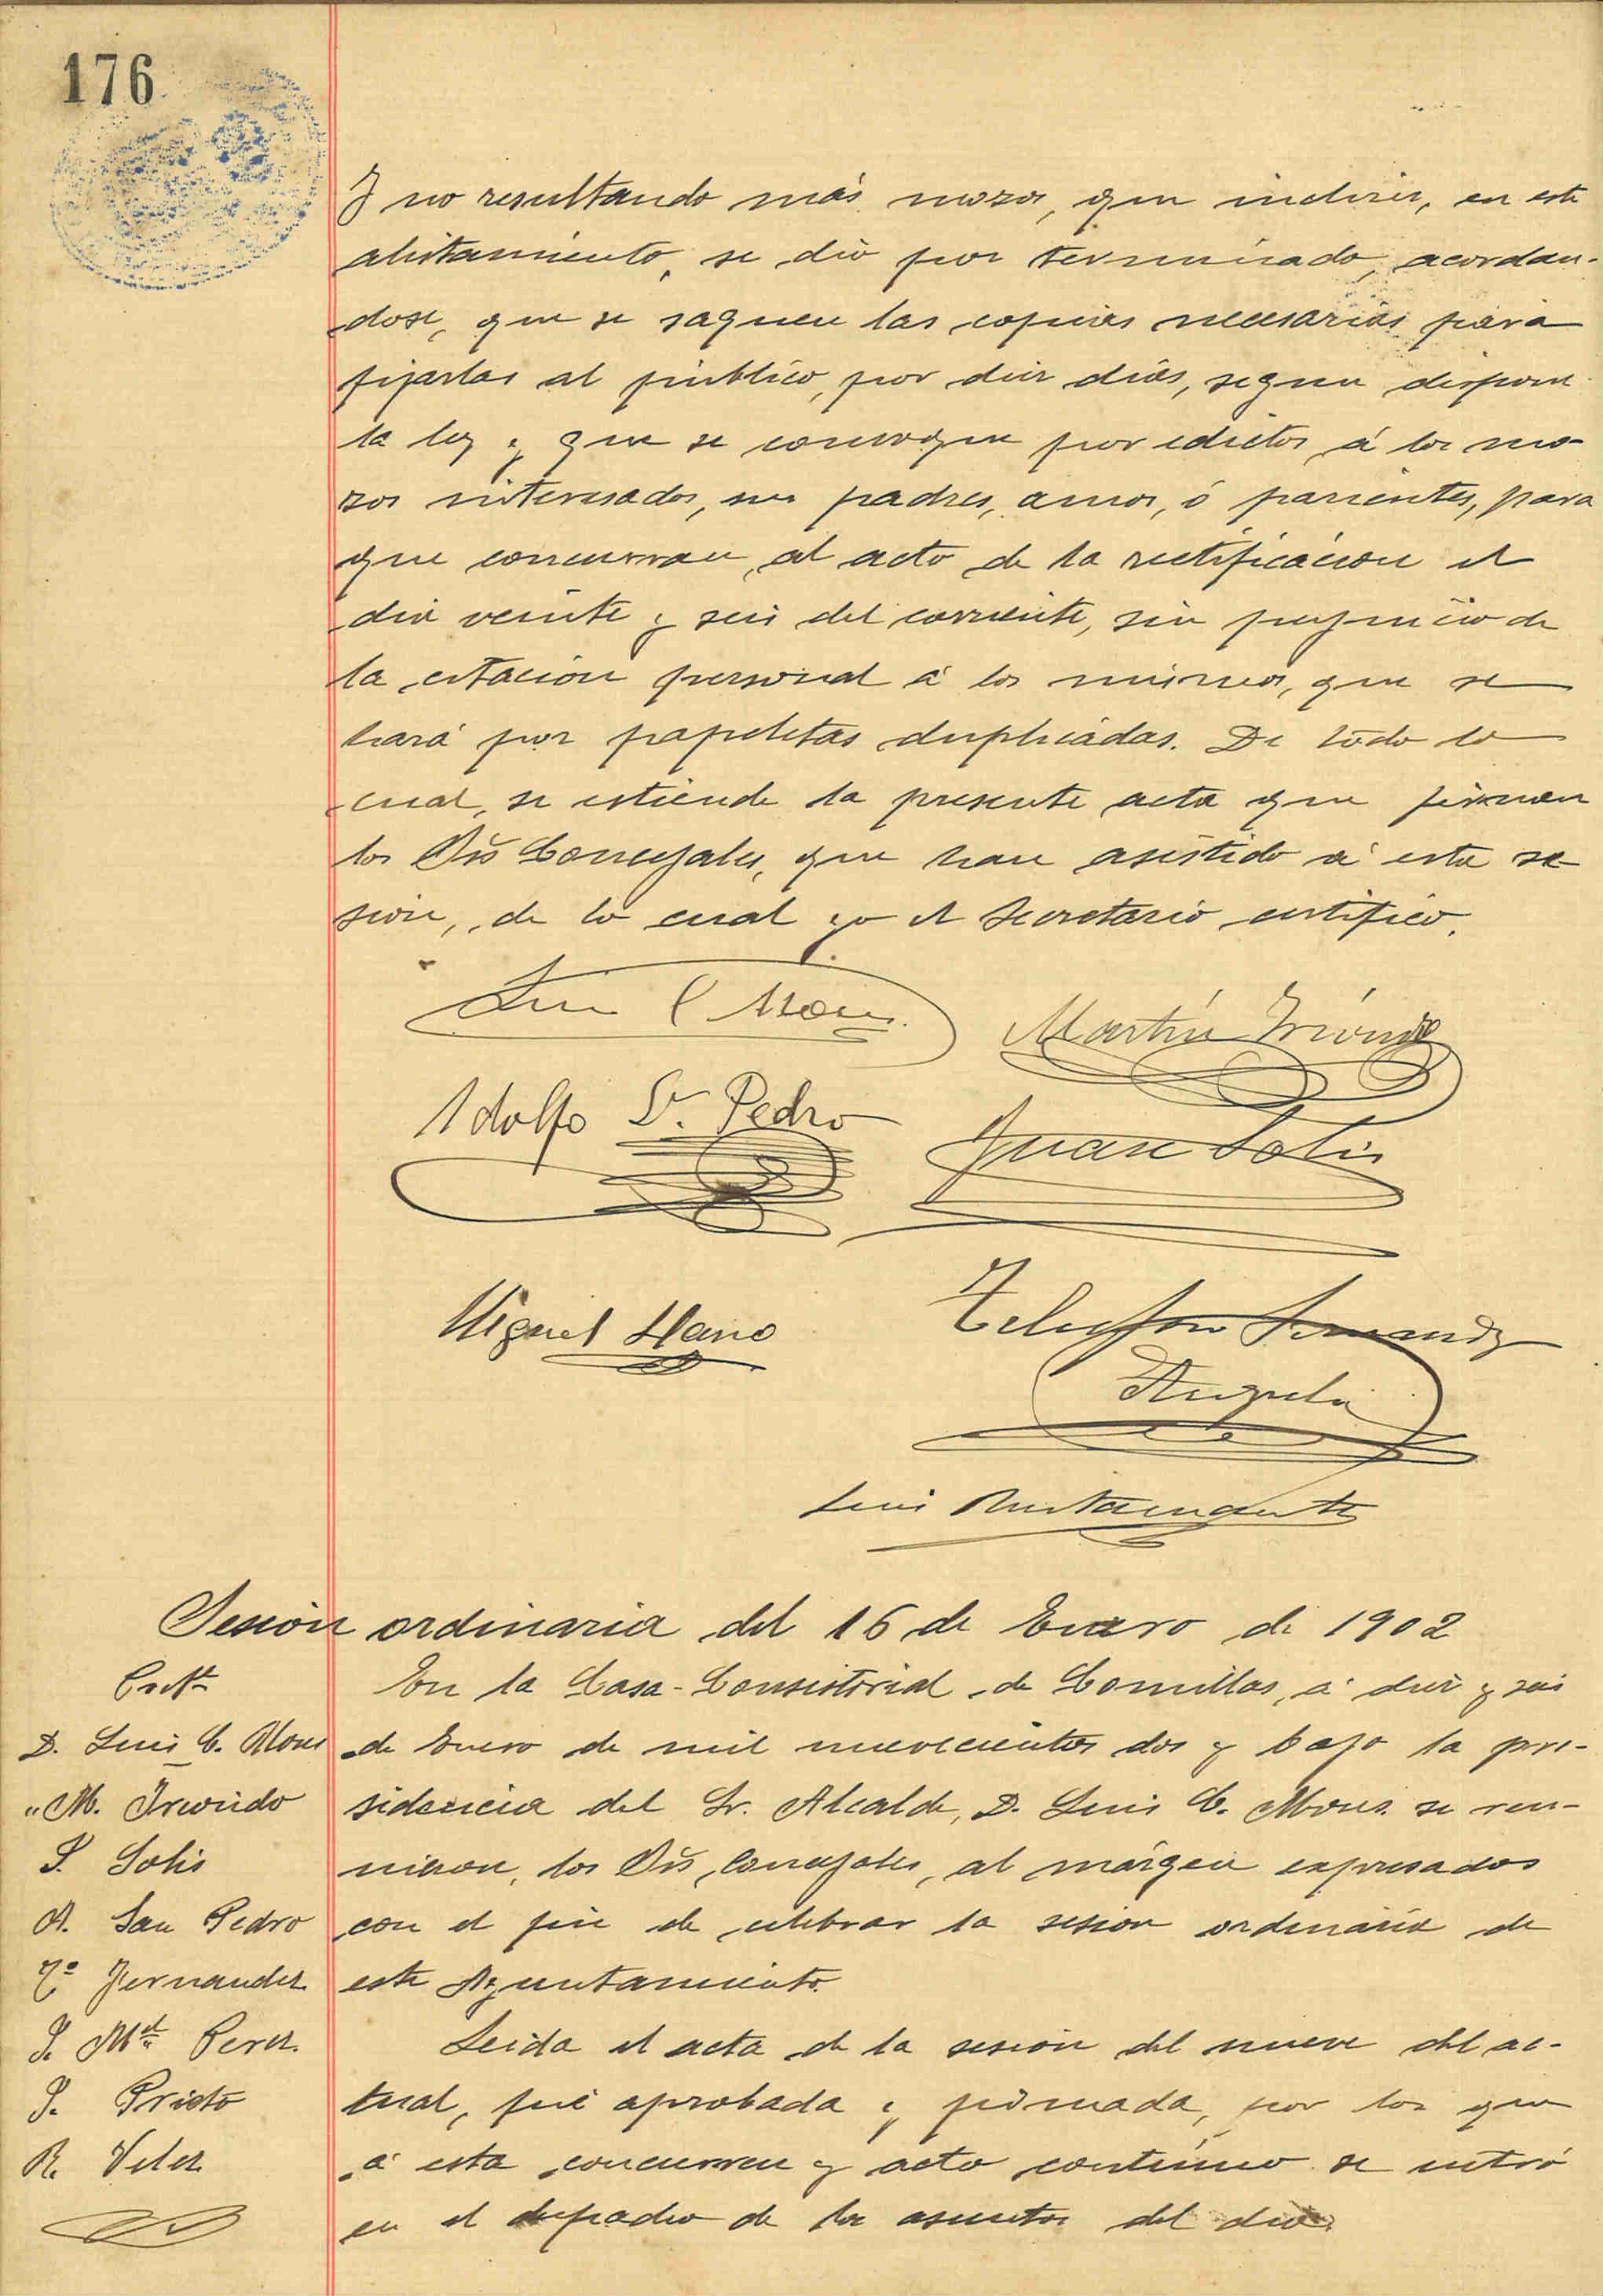 176
Y no resultando más mozos, que incluir, en este
alistamiento, se dió por terminado, acordan-
dose, que se saquen las copias necesarias para
fijarlas al público, por diez dias, segun dispone
la ley y que se convoque por edictos, á los mo-
zos interesados, sus padres, amos, ó parientes, para
que concurran, al acto de la rectificacion el
dia veinte y seis del corriente, sin perjuicio de
la citación personal á los mismos, que se
hará por papeletas duplicadas. De todo lo
cual, se estiende la presente acta que firman
los Srs Concejales, que han asistido á esta se-
sion, de lo cual yo el Secretario certifico.
Luis C Mons
Martin Iriondo
Adolfo Sn. Pedro
Juan Solis
Miguel Llano
Telesforo Fernandez
Luis Bustamante
Sesión ordinaria del 16 de Enero de 1902
D. Luis C. Mons
" M. Iriondo
J. Solis
A. San Pedro
To Fernandez
J. Ma Perez
J. Pristo
R. Velez
En la Casa-Consistorial de Comillas, á diez y seis
de Enero de mil novecientos dos y bajo la pre-
sidencia del Sr. Alcalde, D. Luis C. Mons. se reu-
nieron, los Srs Concejales, al márgen expresados
con el fin de celebrar la sesion ordinaria de
este Ayuntamiento.
Leida el acta de la sesión del nueve del ac-
tual, fué aprobada y firmada, por los que
á esta concurren y acto contínuo se entró
en el despacho de los asuntos del dia.